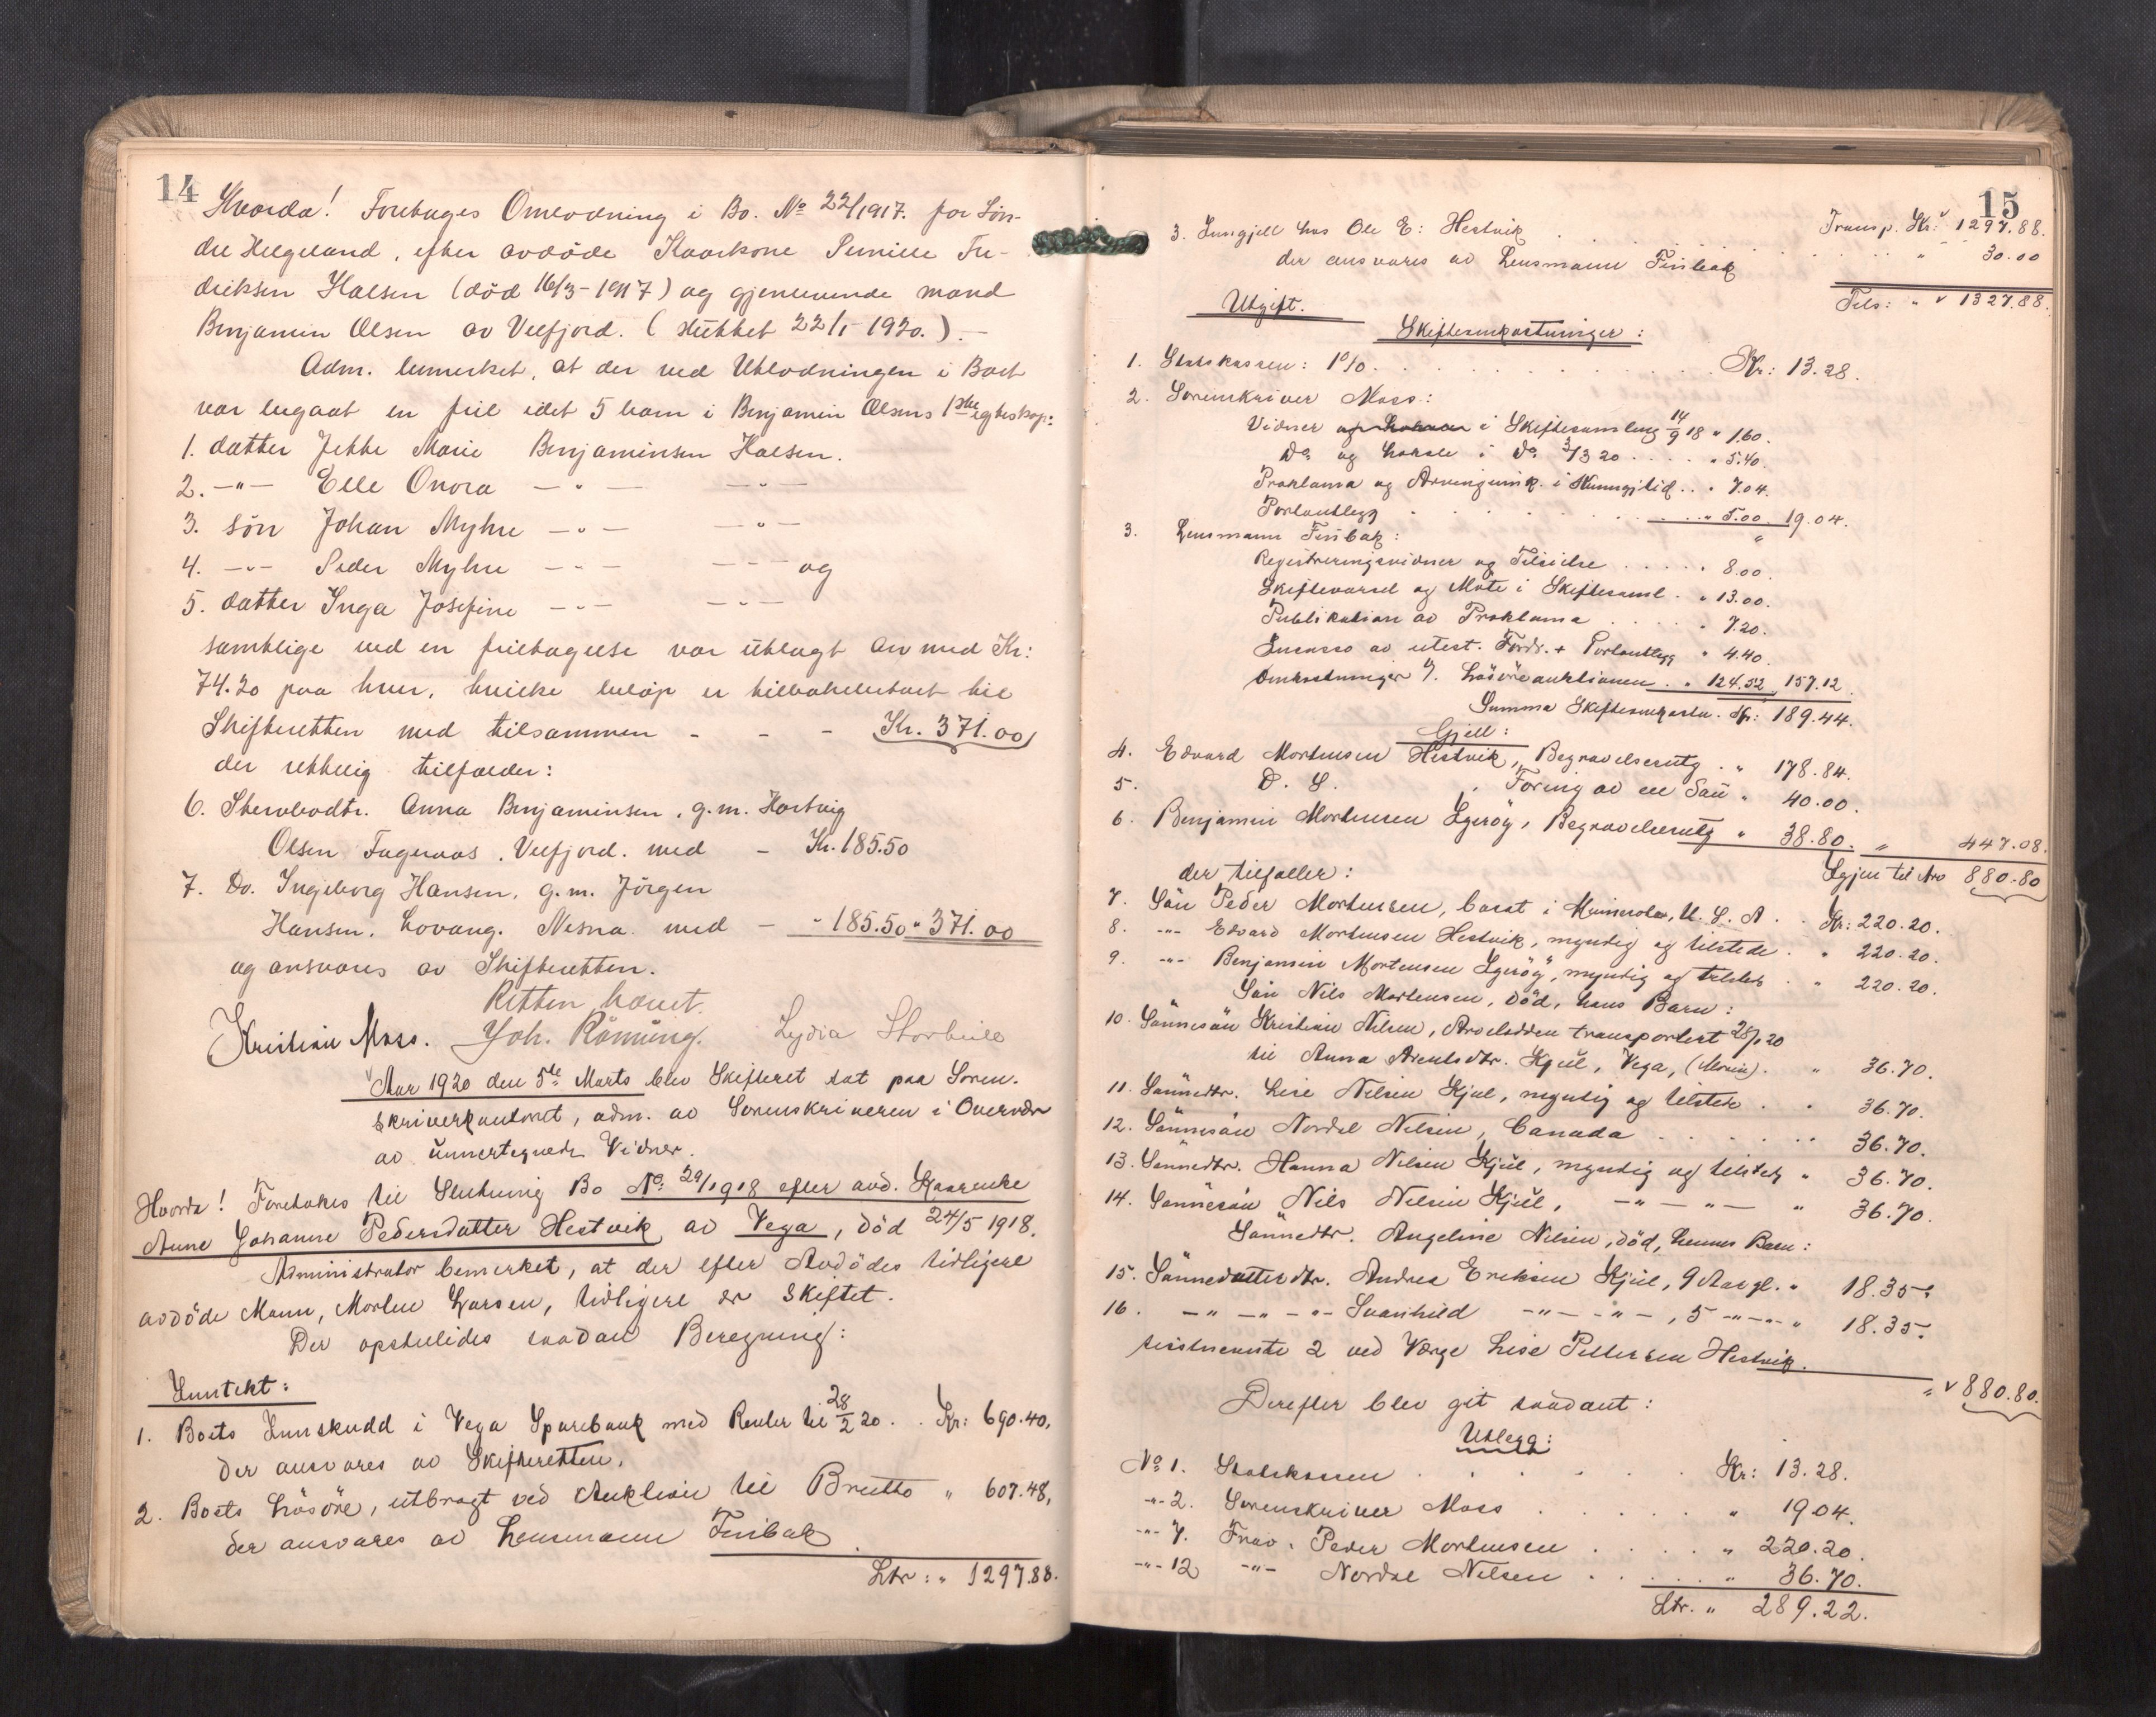 14
Hvorda! Foretages Omlodning i Bo. No 22/1917. for Søn-
dre Helgeland, efter avdøde Kaarkone Pernille Fre-
driksen Halsen (død 16/3-1917) og gjenlevende mand
Benjamin Olsen av Velfjord. (sluttet 22/1-1920.).-
Adm. bemerket, at der ved Utlodningen i Boet
var begaat en feil idet 5 barn i Benjamin Olsens 1ste egteskap:
1. datter Jekke Marie Benjaminsen Halsen.
2. -"- Elle Onora -"- -"-
3. søn Johan Myhre -"- -"-
4. -"- Peder Myhre -"- -"- og
5. datter Inga Josefine -"- -"-
samtlige ved en feiltagelse var ütlagt arv med Kr:
74.20 paa hver, hvilke beløp er tilbakebetalt til
Skifteretten med tilsammen - - - Kr. 371.00
der rettelig tilfalder:
6. Stervbodtr. Anna Benjaminsen, g.m. Hartvig
Olsen Fageraas, Velfjord. med - Kr. 185.50
7. Do. Ingeborg Hansen, g.m. Jörgen
Hansen, Lovang. Nesna. med - " 185.50 " 371.00
og ansvares av Skifteretten.
Retten hævet.
Kristian Moss. Joh. Rönning. Lydia Storbeile
Aar 1920 den 5te Marts blev Skifteret sat paa Soren-
skriverkontoret, adm. av Sorenskriveren i Overvær
av ünnertegnede Vidner.
Hvorda! Foretokes til Slutning Bo No: 29/1918 efter avd. Kaarenke
Anne Johanne Pedersdatter Hestvik av Vega, død 24/5 1918.
Administrator bemerket, at der efter Avdødes tidligere
avdöde Mann, Morten Larsen, tidligere er skiftet.
Der opstilledes saadan Beregning:
Inntekt:
1. Boets Innskudd i Vega Sparebank med Renter til 28/2 20 . . Kr: 690.40,
der ansvares av Skifteretten.
2. Boets Løsøre, utbragt ved Auktion til Brutto " 607.48,
der ansvares av Lensmann Finbak.
Ltr: " 1297.88.
15
Transp. Kr: 1297.88.
3. Inngjeld hos Ole E: Hestvik . . . " 30.00
der ansvares av Lensmann Finbak
Tils: " 1327.88.
Utgift.
Skifteomkostninger:
1. Statskassen: 1%. . . . Kr: 13.28.
2. Sorenskriver Moss:
Vidner og Lokale i Skiftesamling 14/9 18 " 1.60.
Do og Lokale i Do 5/3 20 . . . . " 5.40.
Proklama og Arvingeink. i Kunngj.tid. . . " 7.04.
Portoutlegg . . . . " 5.00. 19.04.
3. Lensmann Finbak:
Registreringsvidner og Tilsielse . . . . . 8.00.
Skiftevarsel og Møte i Skiftesaml. . " 13.00.
Publikation av Proklama . . . . " 7.20.
Incasso av utest. Fordr. + Portoutlegg " 4.40.
Omkostninger v/. Løsøreauktionen . " 124.52 " 157.12.
Summa Skifteomkostn. Kr: 189.44.
Gjeld:
4. Edvard Mortensen Hestvik, Begravelsesutg. . " 178.84.
5. D. S. , Foring av en Sau " 40.00.
6. Benjamin Mortensen Ygeröy, Begravelsesutg " 38.80. " 447.08.
Igjen til Arv 880.80
der tilfaller:
7. Søn Peder Mortensen, bosat i Minnesota, U. S. A . . Kr: 220.20.
8. -"- Edvard Mortensen Hestvik, myndig og tilstede . " 220.20.
9. -"- Benjamin Mortensen Ygeröy, myndig og tilstede . " 220.20.
Søn Nils Mortensen, död, hans Barn:
10. Sönnesön Kristian Nilsen, Arvelodden transportert 28/1 20
til Anna Arentsdtr. Kjul, Vega, (Moren). " 36.70.
11. Sønnedtr. Lise Nilsen Kjul, myndig og tilstede . . 36.70.
12. Sönnesön Nordal Nilsen, Canada . . . . 36.70.
13. Sønnedtr. Hanna Nilsen Kjul, myndig og tilstede " 36.70.
14. Sønnesøn Nils Nilsen Kjul, -"- -"- " 36.70.
Sønnedtr. Angeline Nilsen, død, hennes Barn:
15. Sønnedatterdtr. Andrea Eriksen Kjul, 9 Aar gl. " 18.35
16. -"- -"- -"- Svanhild -"- -"-, 5 -"- -"- " 18.35.
sistnevnte 2 ved Værge Lise Pettersen Hestvik.
" 880.80.
Derefter blev git saadant:
Utlegg:
No 1. Statskassen . . . . . Kr: 13.28.
-"- 2. Sorenskriver Moss . . . . " 19.04.
-"- 7. Frav. Peder Mortensen . . . . " 220.20.
-"- 12 -"- Nordal Nilsen . . . . " 36.70.
Ltr. " 289.22.